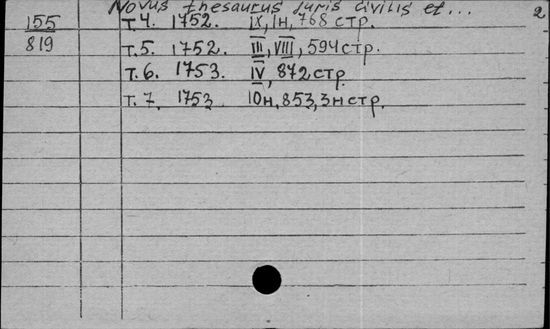 Novus thesaurus juris civilis et...
2
155
819
т.4. 1752. IX, 1н, 768 стр.
т.5. 1752. III, VIII, 594 стр.
т.6. 1753. IV, 872 стр.
т.7. 1753. 10н, 853, 3н стр.